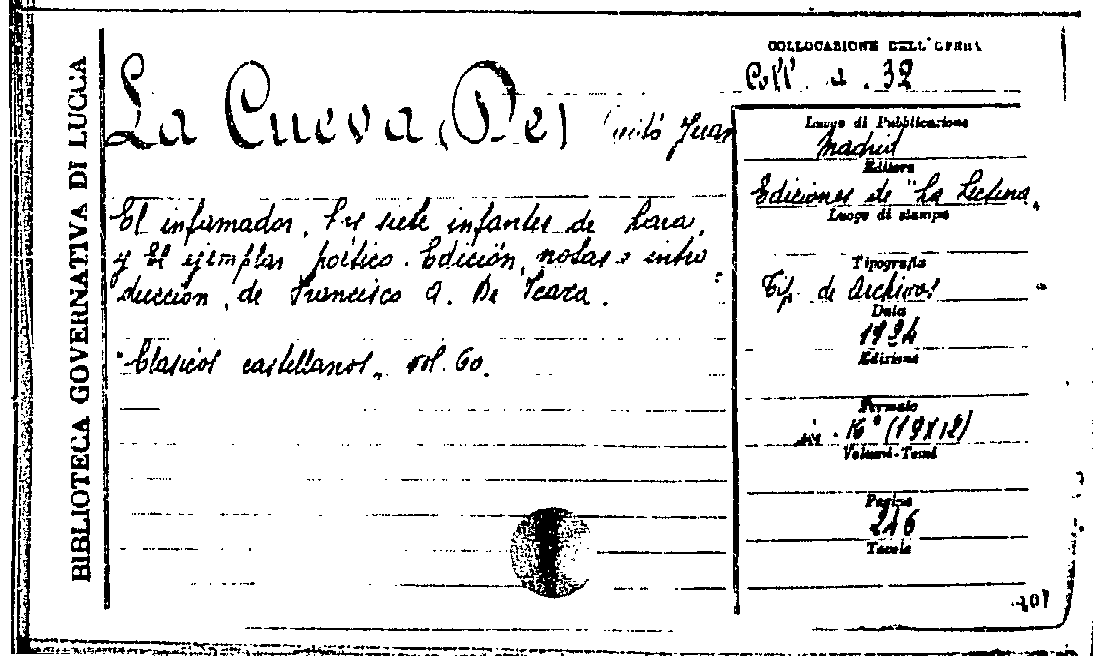 BIBLIOTECA GOVERNATIVA DI LUCCA
COLLOCAZIONE DELL'OPERA
Coll. a. 32
La Cueva (De) Juan
El infamador, Los siete infantes de Lara,
y El ejemplar poético. Edición, notas e intro
ducción, de Francisco A. De Icaza.
"Clásicos castellanos„ vol. 60.
Luogo di Pubblicazione
Madrid
Editore
Ediciones de "La Lectura„
Luogo di stampa
Tipografia
Tip. de Archivos
Data
1924
Edizione
Formato
in-16° (19x12)
Volumi-Tomi
Pagine
246
Tavole